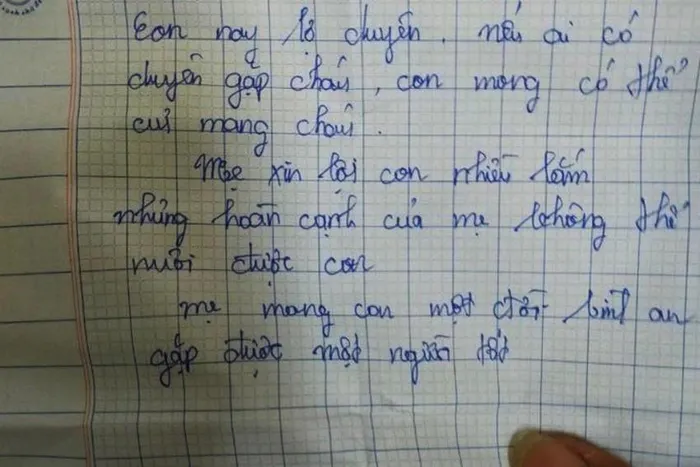 Con nay lỡ chuyến. nếu ai có
duyên gặp cháu, con mong có thể
cưi mang cháu.
Mẹ xin lỗi con nhiều lắm
nhưng hoàn cạnh của mẹ không thể
nuôi được con
mẹ mang con một đời bình an
gặp được một người tốt